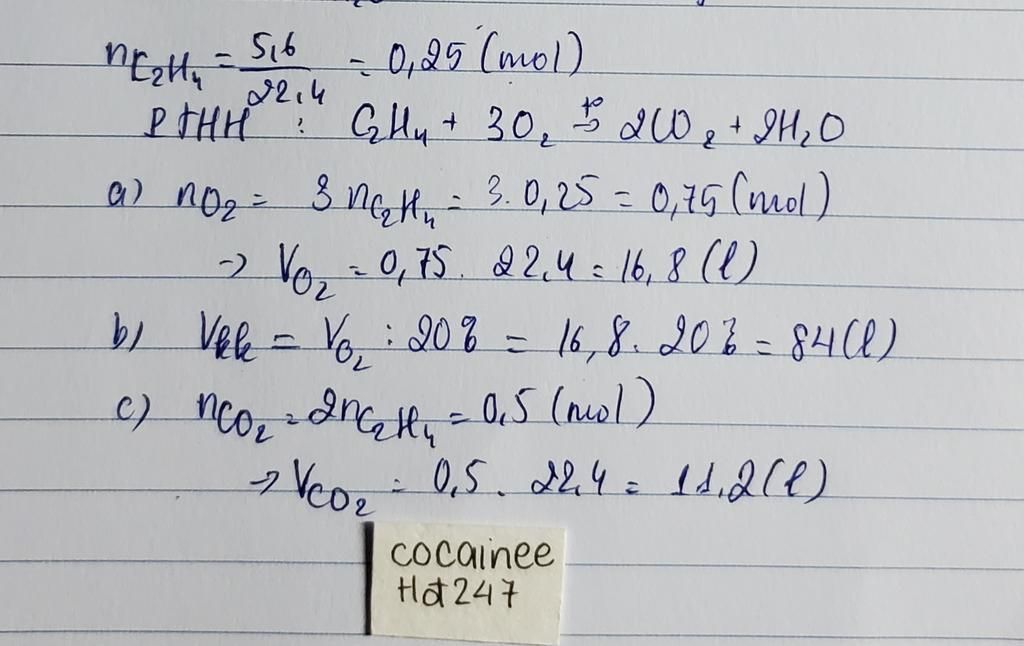 nC₂H₄ = 5,6/22,4 = 0,25 (mol)
PTHH : C₂H₄ + 3O₂ →(t°) 2CO₂ + 2H₂O
a) nO₂ = 3nC₂H₄ = 3. 0,25 = 0,75 (mol)
→ VO₂ = 0,75. 22,4 = 16,8 (l)
b) Vkk = VO₂ : 20% = 16,8. 20% = 84 (l)
c) nCO₂ = 2nC₂H₄ = 0,5 (mol)
→ VCO₂ = 0,5. 22,4 = 11,2 (l)
cocainee
Hđ247